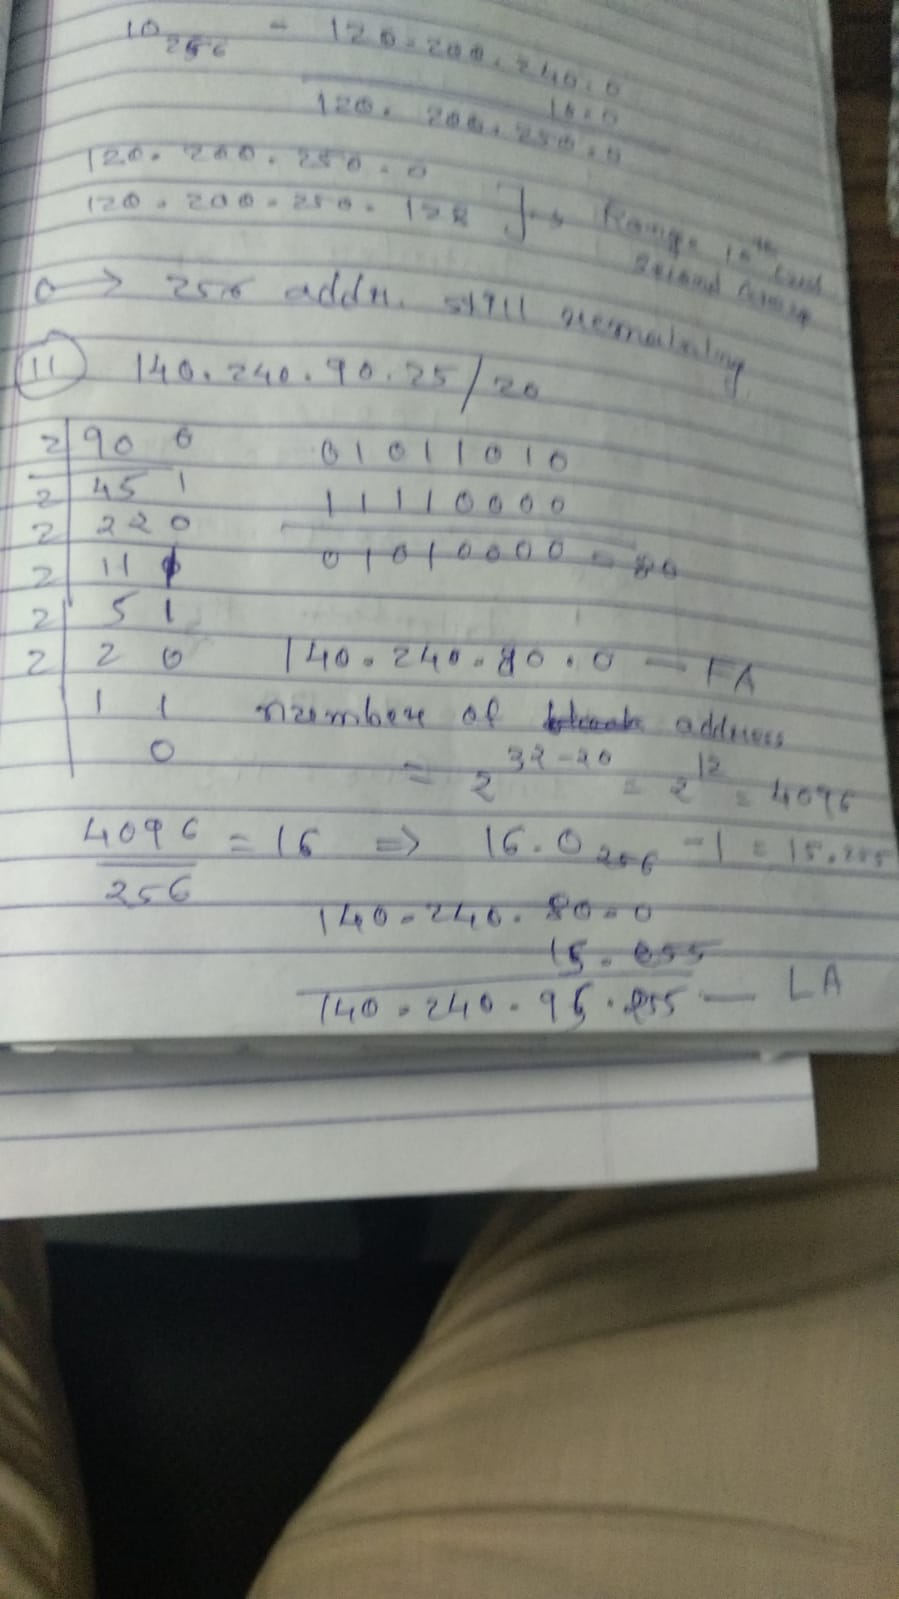 10 256 - 120.200.240.0
10.0
120. 200.250.0
120. 200. 250.0
120.200.250.128 } → Range 10th
second group
→ 256 addr. still remaining
11 140.240.90.25/20
2 90 0 01011010
2 45 1 11110000
2 22 0 01010000 = 80
2 11 1
2 5 1
2 2 0 140.240.80.0 — FA
1 1 number of address
0 = 2^32-20 = 2^12 = 4096
4096/256 = 16 ⇒ 16.0 256 -1 = 15.255
140.240.80.0
15.255
140.240.95.255 — LA